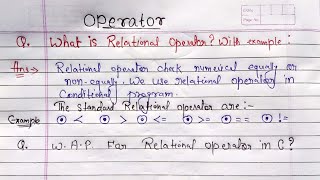 Operator
Q. What is Relational Operator? With example:
Ans:→ Relational operator chek numerical equaly or
non-equaly. We use relational operator in
Conditional program.
The standard Relational operator are :-
Example ⊙ < ⊙ > ⊙ <= ⊙ >= ⊙ == ⊙ !=
Q. W.A.P. For Relational operator in C?